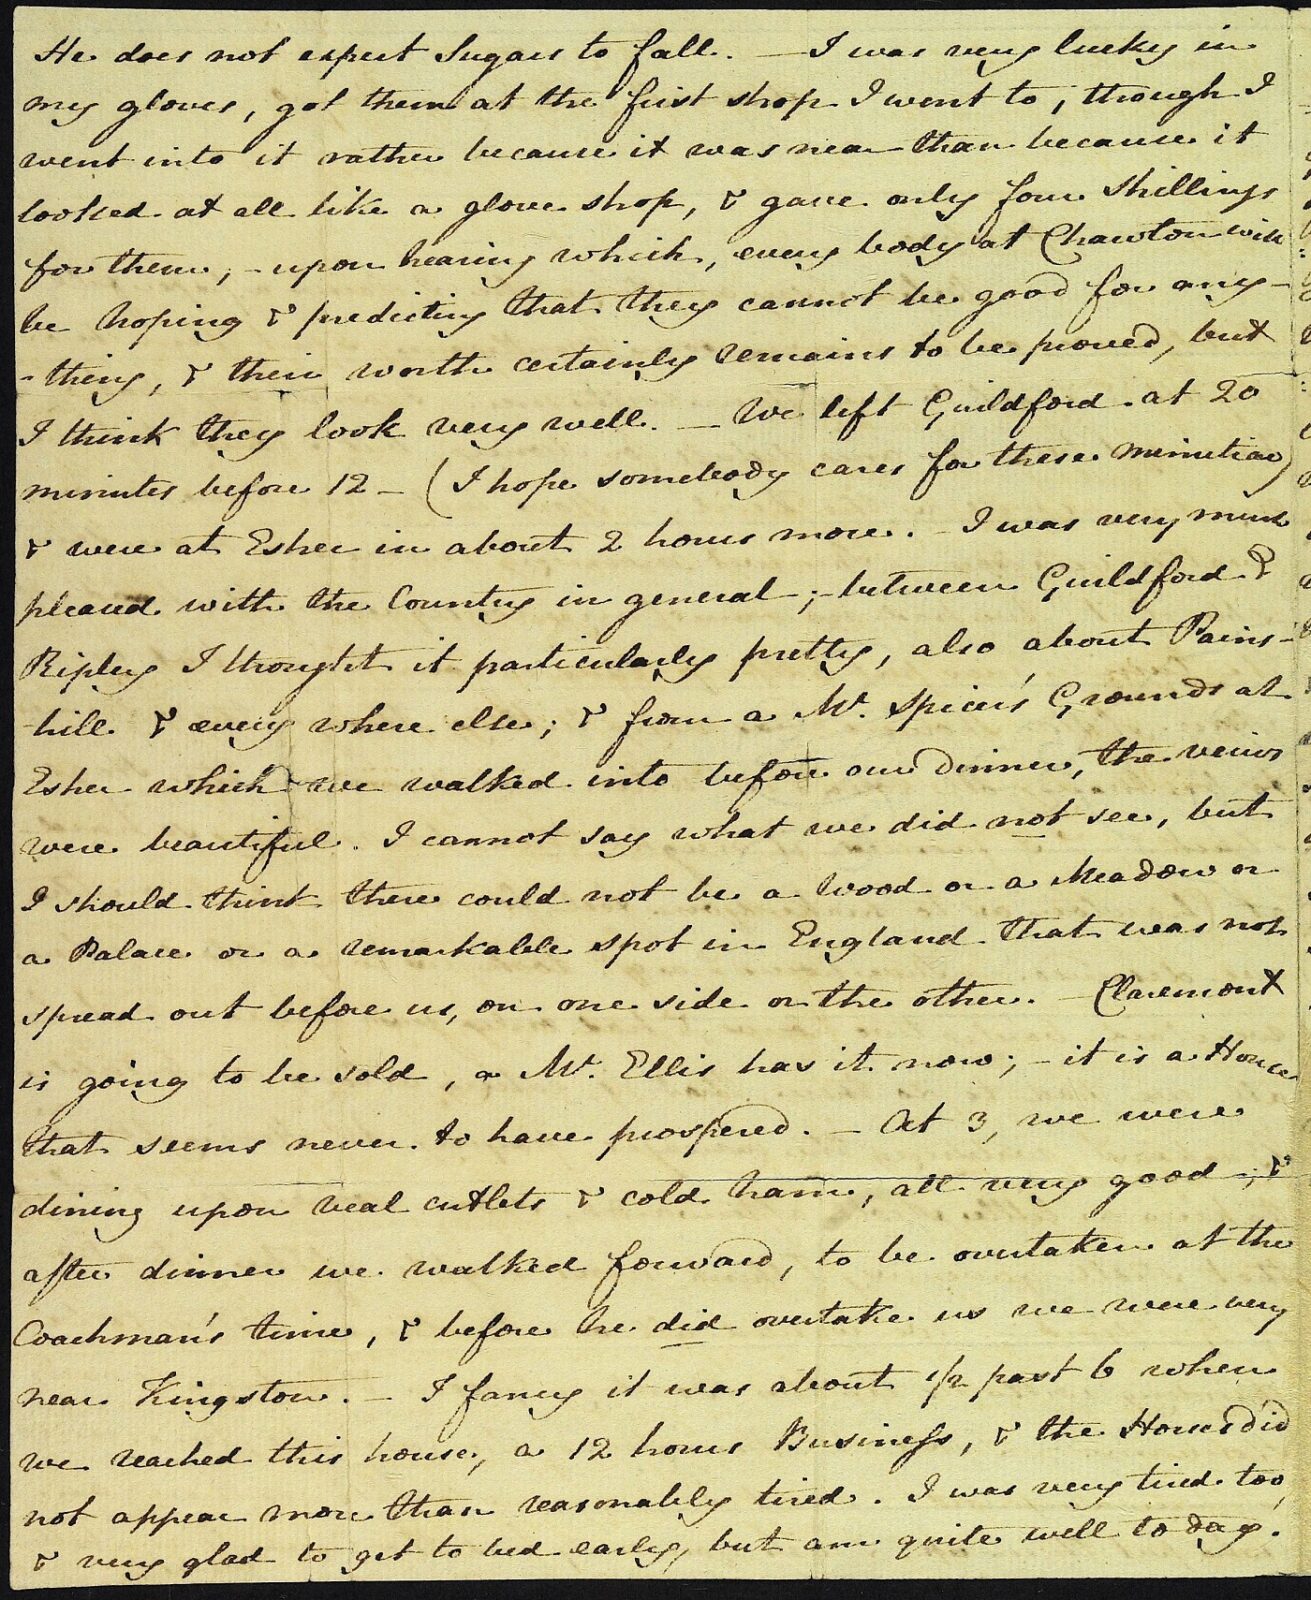 He does not expect Sugars to fall. — I was very lucky in
my gloves, got them at the first shop I went to, though I
went into it rather because it was near than because it
looked at all like a glove shop, & gave only four Shillings
for them; – upon hearing which, every body at Chawton will
be hoping & predicting that they cannot be good for any-
-thing, & their worth certainly remains to be proved, but
I think they look very well. — We left Guildford at 20
minutes before 12 – (I hope somebody cares for these minutiae)
& were at Esher in about 2 hours more. – I was very much
pleased with the Country in general –; – between Guildford &
Ripley I thought it particularly pretty, also about Pains-
-hill & every where else; & from a Mr. Spicer's Grounds at
Esher which we walked into before our dinner, the views
were beautiful. I cannot say what we did not see, but
I should think there could not be a Wood or a Meadow or
a Palace or a remarkable spot in England that was not
spread out before us, on one side or the other. – Claremont
is going to be sold, a Mr. Ellis has it now; – it is a House
that seems never to have prospered. – At 3, we were
dining upon veal cutlets & cold ham, all very good –; &
after dinner we walked forward, to be overtaken at the
Coachman's time, & before he did overtake us we were very
near Kingston. – I fancy it was about 1/2 past 6 when
we reached this house, a 12 hours Business, & the Horses did
not appear more than reasonably tired. I was very tired too,
& very glad to get to bed early, but am quite well to day.